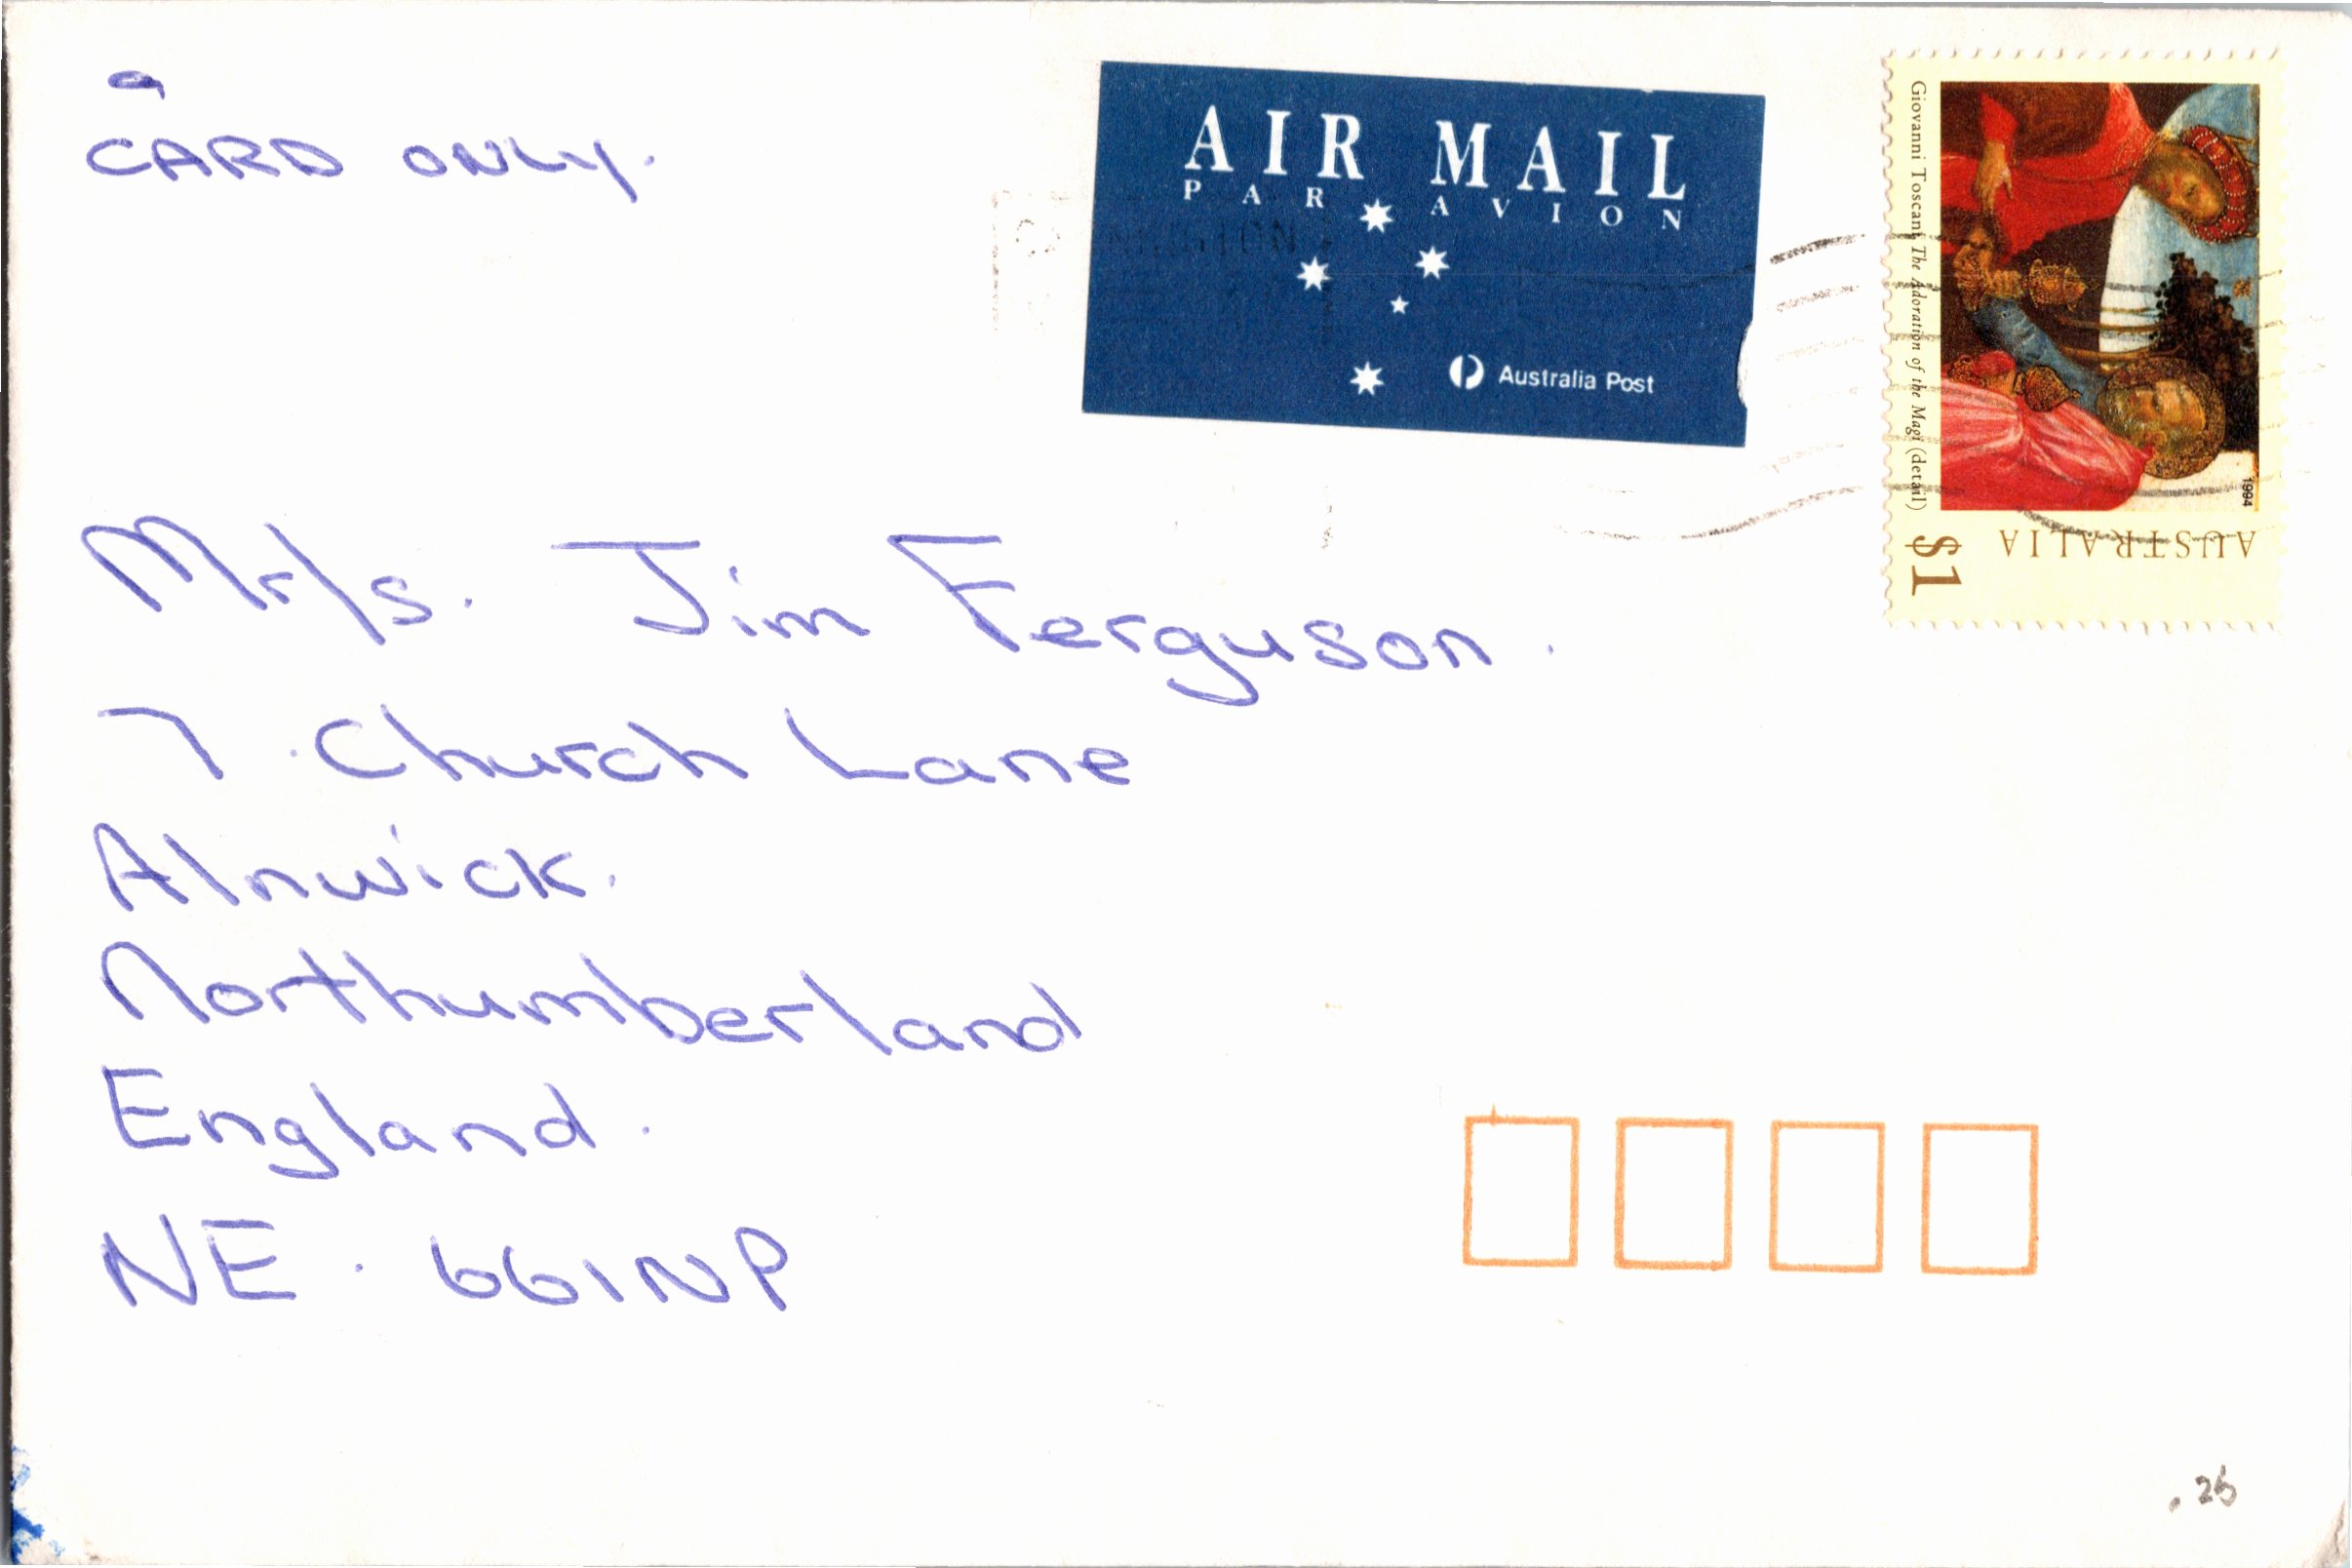 CARD ONLY.
AIR MAIL
PAR AVION
Australia Post
Giovanni Toscani The Adoration of the Magi (detail)
1994
$1 AUSTRALIA
Mr/s. Jim Ferguson.
7 Church Lane
Alnwick.
Northumberland
England.
NE. 661NP
.25